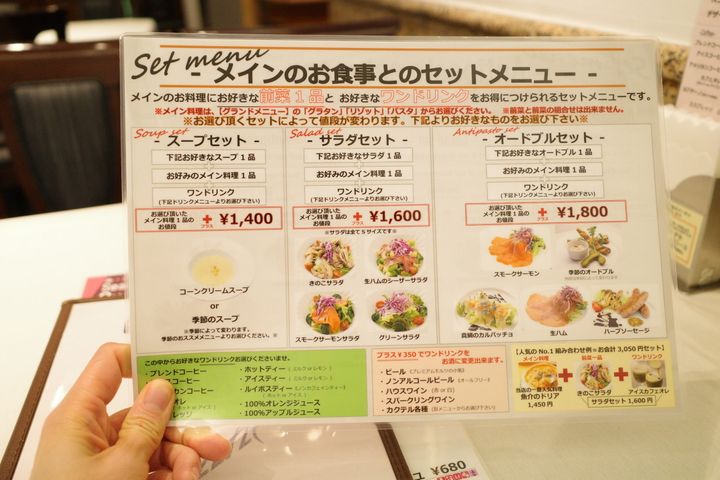 Set menu
- メインのお食事とのセットメニュー -
メインのお料理にお好きな前菜1品と お好きなワンドリンクをお得につけられるセットメニューです。
※メイン料理は、【グランドメニュー】の「グラタン」「リゾット」「パスタ」からお選びください。 ※前菜と前菜の組合せは出来ません。
※お選び頂くセットによって値段が変わります。下記よりお好きなものをお選び下さい※
Soup set
- スープセット -
下記お好きなスープ1品
お好みのメイン料理1品
ワンドリンク
(下記ドリンクメニューよりお選び下さい)
お選び頂いた
メイン料理1品の
お値段
+
プラス
¥1,400
コーンクリームスープ
or
季節のスープ
※季節によって変わります。
季節のおススメメニューよりお選びください。※
Salad set
- サラダセット -
下記お好きなサラダ1品
お好みのメイン料理1品
ワンドリンク
(下記ドリンクメニューよりお選び下さい)
お選び頂いた
メイン料理1品の
お値段
+
プラス
¥1,600
※サラダは全てSサイズです※
きのこサラダ
生ハムのシーザーサラダ
スモークサーモンサラダ
グリーンサラダ
Antipasto set
- オードブルセット -
下記お好きなオードブル1品
お好みのメイン料理1品
ワンドリンク
(下記ドリンクメニューよりお選び下さい)
お選び頂いた
メイン料理1品の
お値段
+
プラス
¥1,800
スモークサーモン
季節のオードブル
真鯛のカルパッチョ
生ハム
ハーブソーセージ
この中からお好きなワンドリンクお選びくださいませ。
・ブレンドコーヒー
・ホットティー (ミルク or レモン)
・アイスティー (ミルク or レモン)
・ルイボスティー (ノンカフェインティー)
(ホット or アイス)
・100%オレンジジュース
・100%アップルジュース
プラス¥350でワンドリンクを
お酒に変更出来ます。
・ビール (プレミアムモルツの小瓶)
・ノンアルコールビール (オールフリー)
・ハウスワイン (赤 or 白)
・スパークリングワイン
・カクテル各種 (別メニューからお選び下さい)
【人気のNo.1組み合わせ例=お会計 3,050円セット】
メイン料理
前菜一品
ワンドリンク
当店の一番人気料理
魚介のドリア
1,450円
+
きのこサラダ
+
アイスカフェオレ
サラダセット 1,600円
¥680